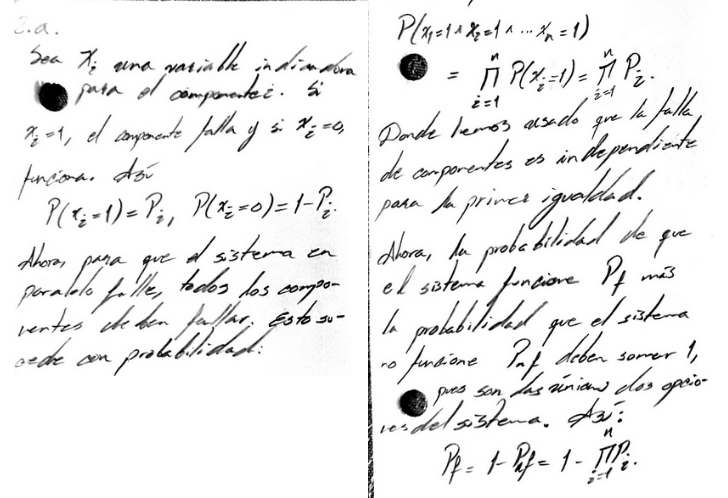 2.a.
Sea x_i una variable indicadora
para el componente i. Si
x_i=1, el componente falla y si x_i=0,
funciona. Así
P(x_i=1)=P_i, P(x_i=0)=1-P_i.
Ahora, para que el sistema en
paralelo falle, todos los compo-
nentes deben fallar. Esto su-
cede con probabilidad:
P(x_1=1 ∧ x_2=1 ∧ ... x_n=1)
= ∏_{i=1}^{n} P(x_i=1) = ∏_{i=1}^{n} P_i.
Donde hemos usado que la falla
de componentes es independiente
para la primer igualdad.
Ahora, la probabilidad de que
el sistema funcione P_f más
la probabilidad que el sistema
no funcione P_nf deben sumar 1,
pues son las únicas dos opcio-
nes del sistema. Así:
P_f = 1 - P_nf = 1 - ∏_{i=1}^{n} P_i.